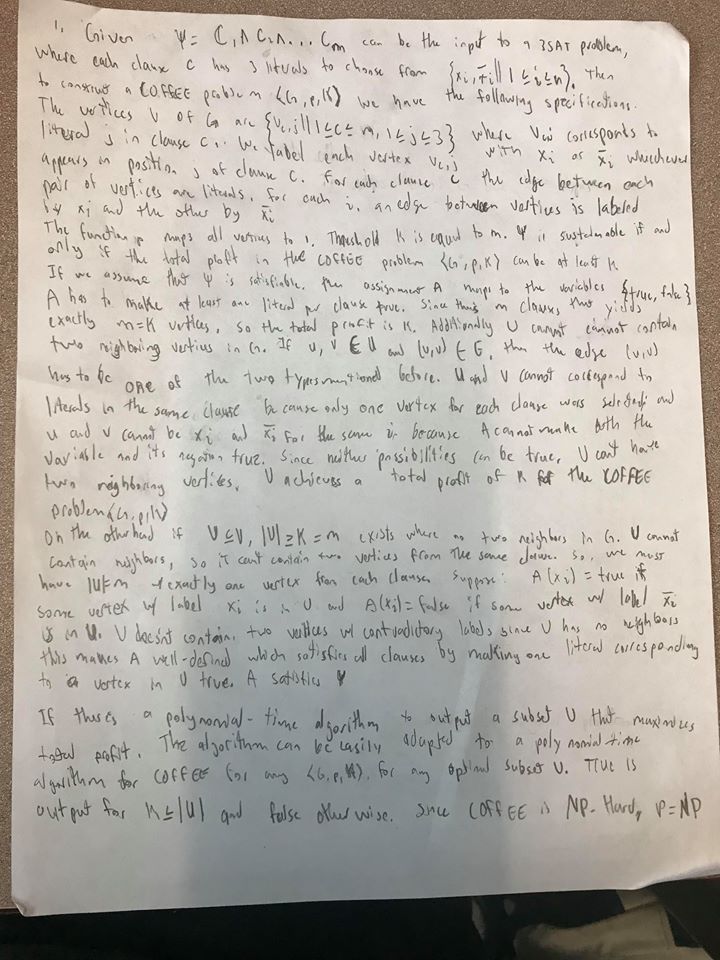 1. Given Ψ = C₁ ∧ C₂ ∧ ... Cₘ can be the input to a 3SAT problem,
where each clause C has 3 literals to choose from {xᵢ, x̄ᵢ || 1 ≤ i ≤ n}. Then
to construct a COFFEE problem ⟨G, p, K⟩ we have the following specifications.
The vertices V of G are {v_c,j || 1 ≤ c ≤ m, 1 ≤ j ≤ 3} where V_c,j corresponds to
literal j in clause C. We label each vertex v_c,j with xᵢ or x̄ᵢ whichever
appears in position j of clause C. For each clause C the edge between each
pair of vertices are literals. For each i, an edge between vertices is labeled
by xᵢ and the other by x̄ᵢ
The function p maps all vertices to 1. Threshold K is equal to m. Ψ is if and
only if the total profit in the COFFEE problem ⟨G, p, K⟩ can be at least K
If we assume that Ψ is satisfiable, then assignment A maps to the variables {true, false}
A has to make at least one literal per clause true. Since m clauses, this yields
exactly m=K vertices, so the total profit is K. Additionally U cannot contain
two neighboring vertices in G. If u, v ∈ U and (u,v) ∈ G, then the edge (u,v)
has to be one of the two types mentioned before. U and V cannot correspond to
literals in the same clause because only one vertex for each clause was selected and
u and v cannot be xᵢ and x̄ᵢ for the same i because A cannot make both the
variable and its negation true. Since neither possibilities can be true, U can't have
two neighboring vertices. U achieves a total profit of K for the COFFEE
problem ⟨G, p, K⟩
On the other hand if U ⊆ V, |U| ≥ K = m exists where no two neighbors in G. U cannot
contain neighbors, so it can't contain two vertices from the same clause. So, we must
have |U|=m & exactly one vertex from each clause. Suppose: A(xᵢ) = true if
some vertex w/ label xᵢ is in U and A(xᵢ) = false if some vertex w/ label x̄ᵢ
is in U. U doesn't contain two vertices w/ contradictory labels since U has no neighbors
this makes A well-defined which satisfies all clauses by making one literal corresponding
to a vertex in U true. A satisfies Ψ
If there's a polynomial-time algorithm to output a subset U that maximizes
total profit. The algorithm can be easily adapted to a polynomial time
algorithm for COFFEE for any ⟨G, p, K⟩, for any optimal subset U. True is
output for K ≤ |U| and false otherwise. Since COFFEE is NP-Hard, P=NP